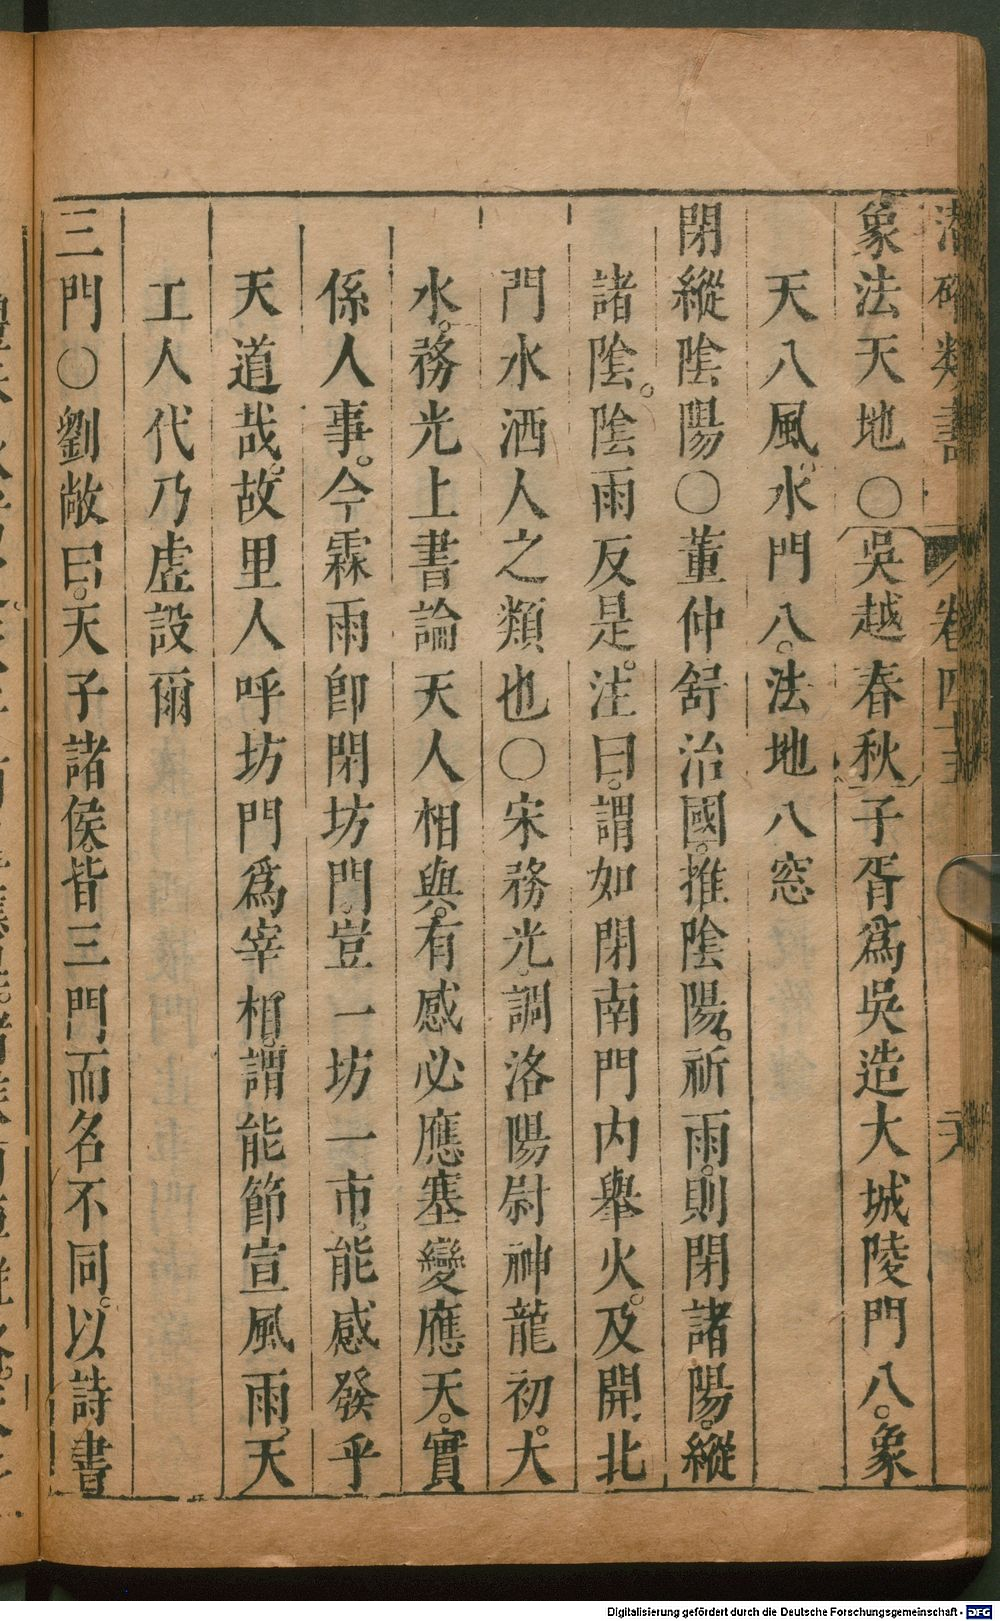 潛確類書 卷四十五
象法天地〇吳越春秋子胥爲吳造大城陵門八。象
天八風。水門八。法地八窓
閉縱隂陽〇董仲舒治國。推隂陽。祈雨。則閉諸陽。縱
諸隂。隂雨反是。注曰。謂如閉南門内舉火。及開北
門水洒人之類也〇宋務光。調洛陽尉神龍初。大
水。務光上書論天人相與。有感必應塞變應天。實
係人事。今霖雨卽閉坊門。豈一坊一市。能感發乎
天道哉。故里人呼坊門爲宰相。謂能節宣風雨。天
工人代乃虛設爾
三門〇劉敞曰。天子諸侯。皆三門而名不同。以詩書
Digitalisierung gefördert durch die Deutsche Forschungsgemeinschaft - DFG